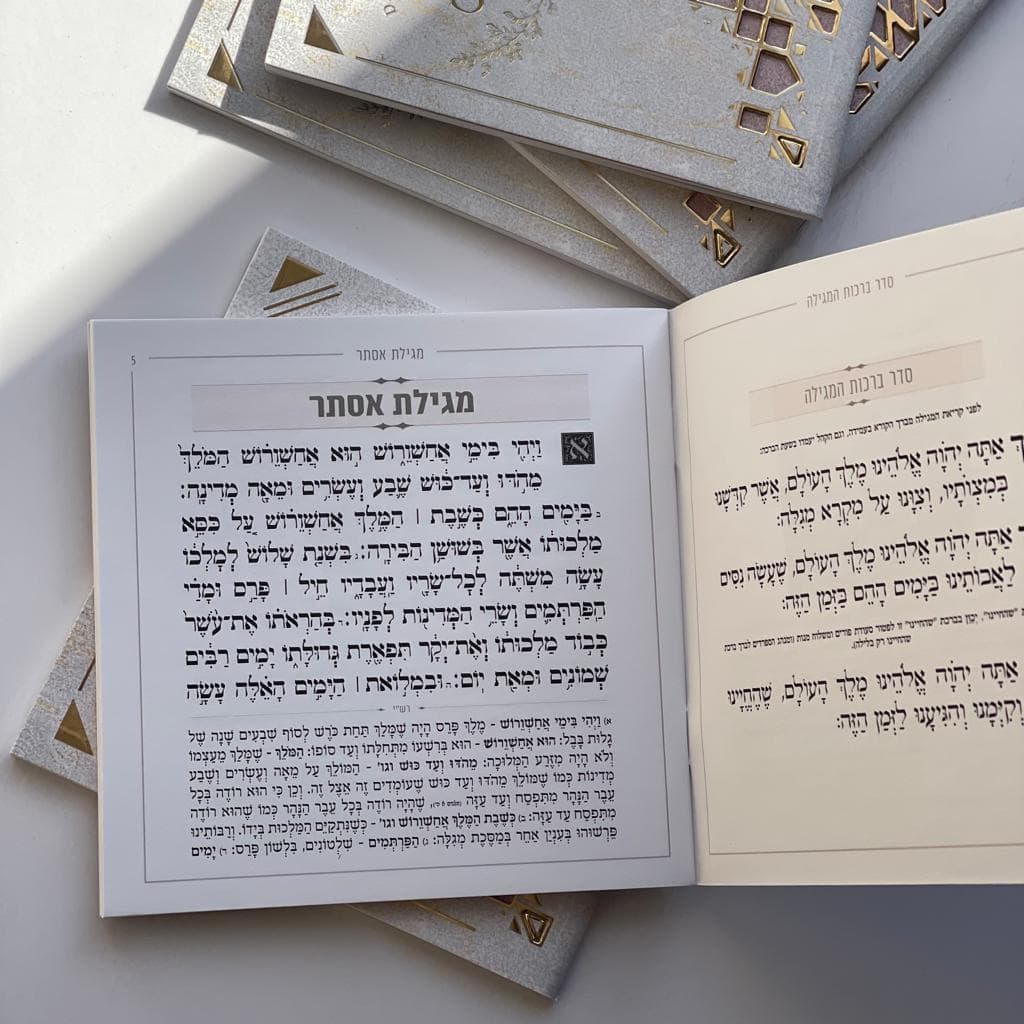 סדר ברכות המגילה
סדר ברכות המגילה
לפני קריאת המגילה מברך הקורא בעמידה, וגם הקהל יעמדו בשעת הברכה:
אַתָּה יְהֹוָה אֱלֹהֵינוּ מֶלֶךְ הָעוֹלָם, אֲשֶׁר קִדְּשָׁנוּ
בְּמִצְוֹתָיו, וְצִוָּנוּ עַל מִקְרָא מְגִלָּה:
אַתָּה יְהֹוָה אֱלֹהֵינוּ מֶלֶךְ הָעוֹלָם, שֶׁעָשָׂה נִסִּים
לַאֲבוֹתֵינוּ בַּיָּמִים הָהֵם בַּזְּמַן הַזֶּה:
"שהחיינו", יְכַוֵּן בברכת "שהחיינו" זו לפטור סעודת פורים ומשלוח מנות (ומנהג הספרדים לברך ברכת
שהחיינו רק בלילה).
אַתָּה יְהֹוָה אֱלֹהֵינוּ מֶלֶךְ הָעוֹלָם, שֶׁהֶחֱיָינוּ
וְקִיְּמָנוּ וְהִגִּיעָנוּ לַזְּמַן הַזֶּה:
מגילת אסתר
5
מגילת אסתר
א וַיְהִי בִּימֵי אֲחַשְׁוֵרוֹשׁ הוּא אֲחַשְׁוֵרוֹשׁ הַמֹּלֵךְ
מֵהֹדּוּ וְעַד־כּוּשׁ שֶׁבַע וְעֶשְׂרִים וּמֵאָה מְדִינָה:
ב בַּיָּמִים הָהֵם כְּשֶׁבֶת ׀ הַמֶּלֶךְ אֲחַשְׁוֵרוֹשׁ עַל כִּסֵּא
מַלְכוּתוֹ אֲשֶׁר בְּשׁוּשַׁן הַבִּירָה: ג בִּשְׁנַת שָׁלוֹשׁ לְמָלְכוֹ
עָשָׂה מִשְׁתֶּה לְכָל־שָׂרָיו וַעֲבָדָיו חֵיל ׀ פָּרַס וּמָדַי
הַפַּרְתְּמִים וְשָׂרֵי הַמְּדִינוֹת לְפָנָיו: ד בְּהַרְאֹתוֹ אֶת־עֹשֶׁר
כְּבוֹד מַלְכוּתוֹ וְאֶת־יְקָר תִּפְאֶרֶת גְּדוּלָּתוֹ יָמִים רַבִּים
שְׁמוֹנִים וּמְאַת יוֹם: ה וּבִמְלוֹאת ׀ הַיָּמִים הָאֵלֶּה עָשָׂה
רש"י
א) וַיְהִי בִּימֵי אֲחַשְׁוֵרוֹשׁ - מֶלֶךְ פָּרַס הָיָה שֶׁמָּלַךְ תַּחַת כֹּרֶשׁ לְסוֹף שִׁבְעִים שָׁנָה שֶׁל
גָּלוּת בָּבֶל: הוּא אֲחַשְׁוֵרוֹשׁ - הוּא בְּרִשְׁעוֹ מִתְּחִלָּתוֹ וְעַד סוֹפוֹ: הַמֹּלֵךְ - שֶׁמָּלַךְ מֵעַצְמוֹ
וְלֹא הָיָה מִזֶּרַע הַמְּלוּכָה: מֵהֹדּוּ וְעַד כּוּשׁ וגו' - הַמּוֹלֵךְ עַל מֵאָה וְעֶשְׂרִים וְשֶׁבַע
מְדִינוֹת כְּמוֹ שֶׁמּוֹלֵךְ מֵהֹדּוּ וְעַד כּוּשׁ שֶׁעוֹמְדִים זֶה אֵצֶל זֶה. וְכֵן כִּי הוּא רוֹדֶה בְּכָל
עֵבֶר הַנָּהָר מִתִּפְסַח וְעַד עַזָּה (מלכים א ה'), שֶׁהָיָה רוֹדֶה בְּכָל עֵבֶר הַנָּהָר כְּמוֹ שֶׁהוּא רוֹדֶה
מִתִּפְסַח עַד עַזָּה: ב) כְּשֶׁבֶת הַמֶּלֶךְ אֲחַשְׁוֵרוֹשׁ וגו' - כְּשֶׁנִּתְקַיֵּם הַמַּלְכוּת בְּיָדוֹ. וְרַבּוֹתֵינוּ
פֵּרְשׁוּהוּ בְּעִנְיָן אַחֵר בְּמַסֶּכֶת מְגִלָּה: ג) הַפַּרְתְּמִים - שִׁלְטוֹנִים, בִּלְשׁוֹן פָּרַס: ד) יָמִים